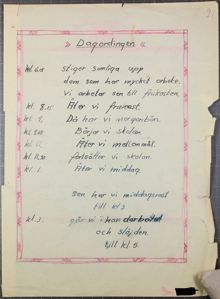 » Dagordningen «
kl. 6.00 stiger somliga upp
dem som har mycket arbete.
Vi arbetar sen till frukosten.
kl. 8.15 Äter vi frukost.
kl. 9. Då har vi morgonbön.
Börjar vi skolan.
kl. 11. Äter vi mellanmål.
kl. 11.30 fortsätter vi skolan.
kl. 1. Äter vi middag.
sen har vi middagsrast
till kl 3
kl. 3. går vi i han arbetet
och slöjden
till kl. 6.